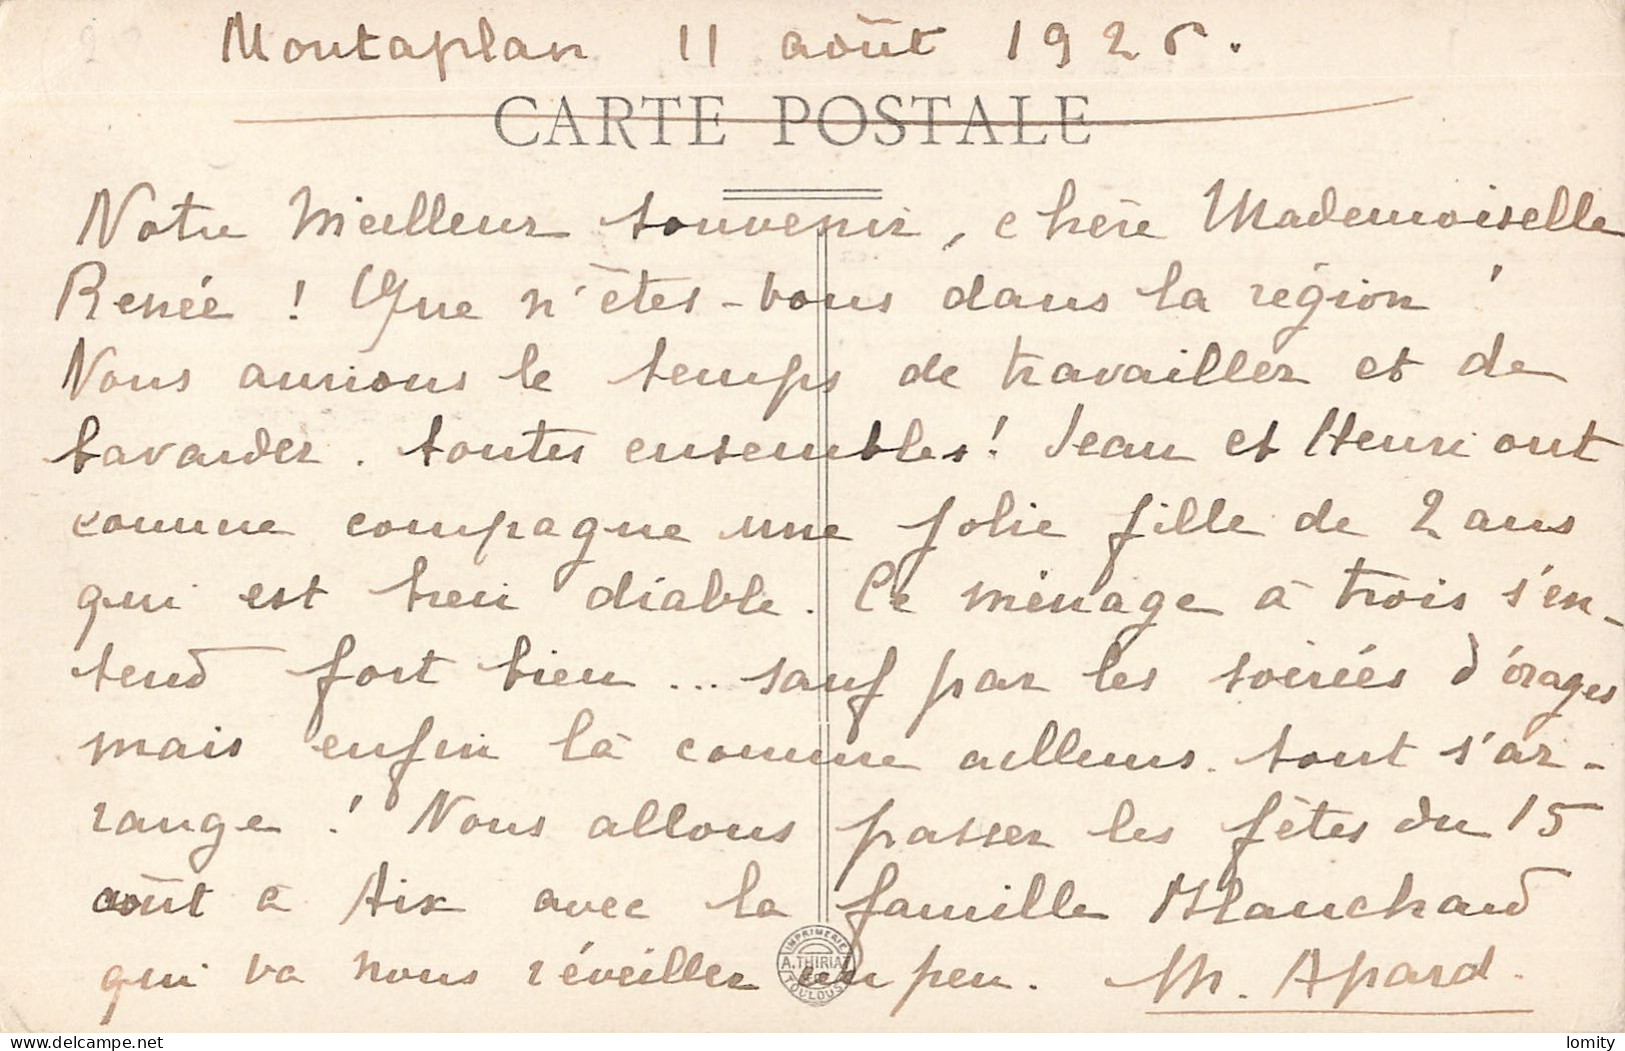 Montaplan 11 août 1926.
CARTE POSTALE
Notre meilleur souvenir, chère Mademoiselle
Renée ! Que n'êtes-vous dans la région !
Nous aurions le temps de travailler et de
bavarder. toutes ensembles ! Jean et Henri ont
comme compagne une jolie fille de 2 ans
qui est bien diable. Ce ménage à trois s'en-
tend fort bien ... sauf par les soirées d'orages
mais enfin là comme ailleurs. tout s'ar-
range ! Nous allons passer les fêtes du 15
août à Aix avec la famille Blanchard
qui va nous réveiller un peu. M. Apard.
IMPRIMERIE
A. THIRIAT
TOULOUSE
delcampe.net
lomity